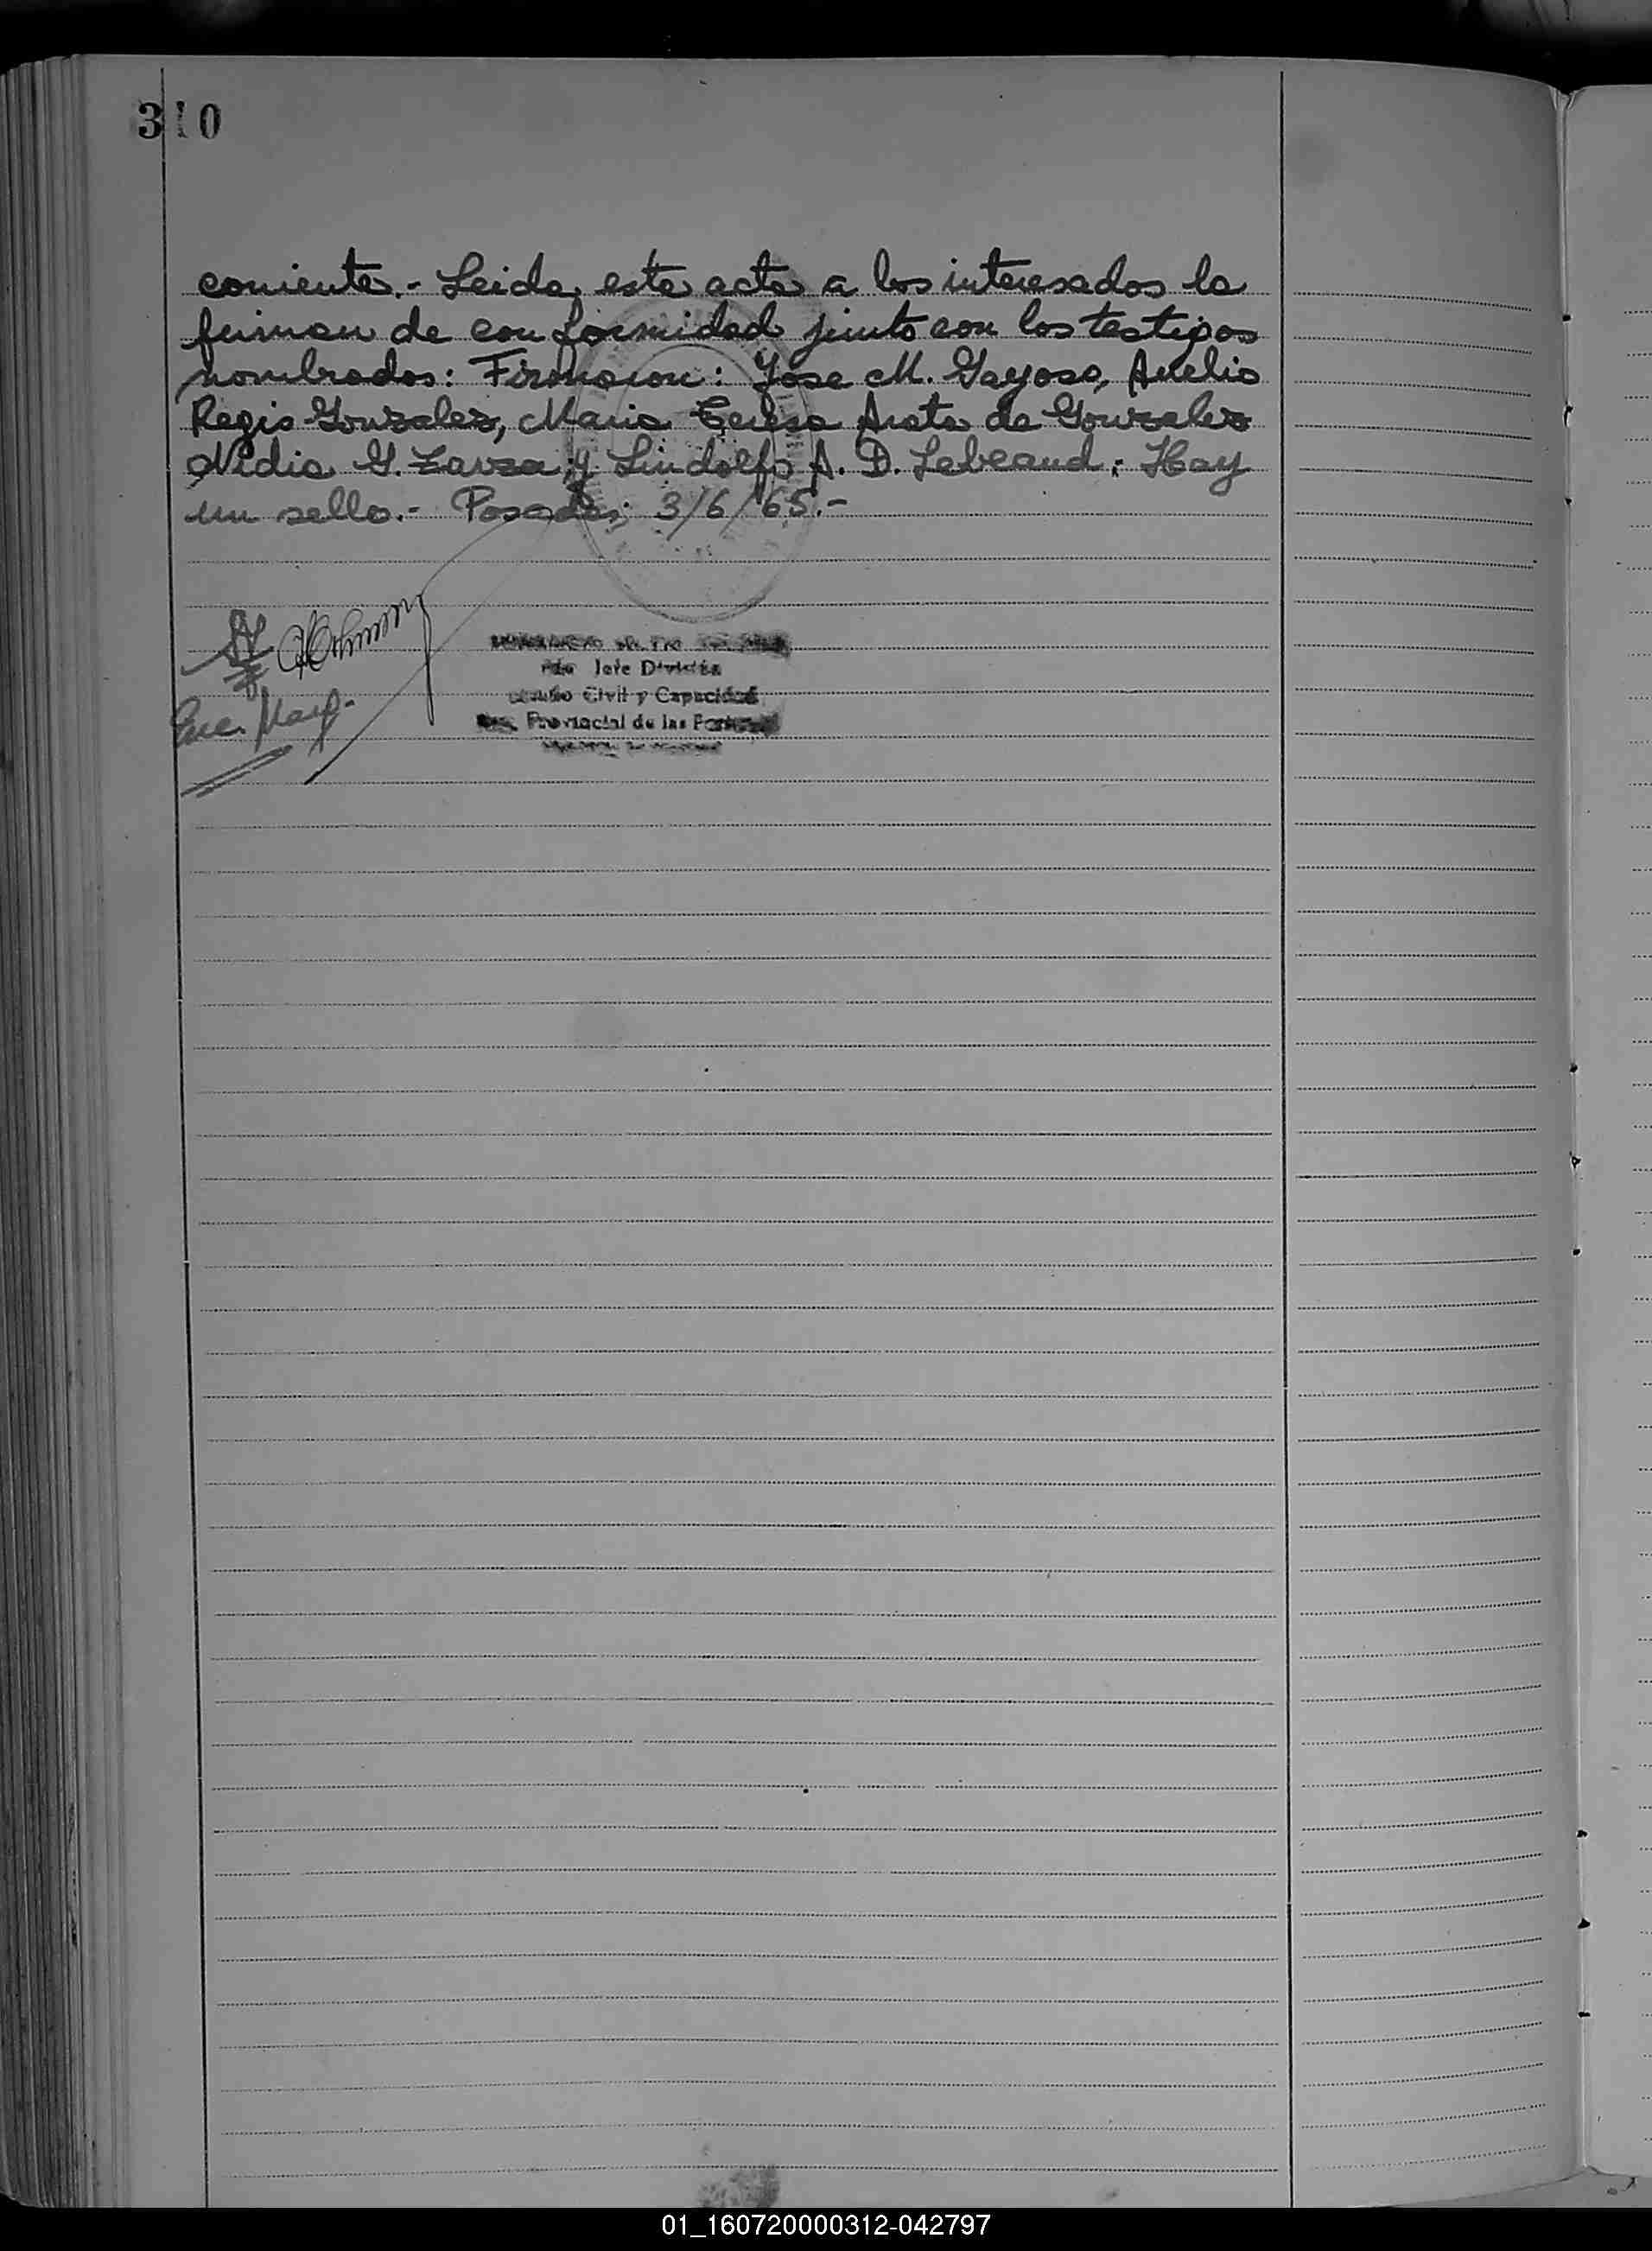 310
corriente.- Leida esta acta a los interesados la
firman de conformidad junto con los testigos
nombrados: Firmaron: Jose M. Gayoso, Aurelio
Regis Gonzalez, Maria Teresa Arata de Gonzalez
Nidia G. Zarza y Lindolfo A. D. Lebeaud; Hay
un sello.- Posadas; 3/6/65.-
Jefe División
Civil y Capacidad
Provincial de las
01_160720000312-042797